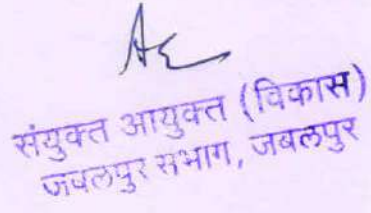 संयुक्त आयुक्त (विकास)
जबलपुर सभाग, जबलपुर